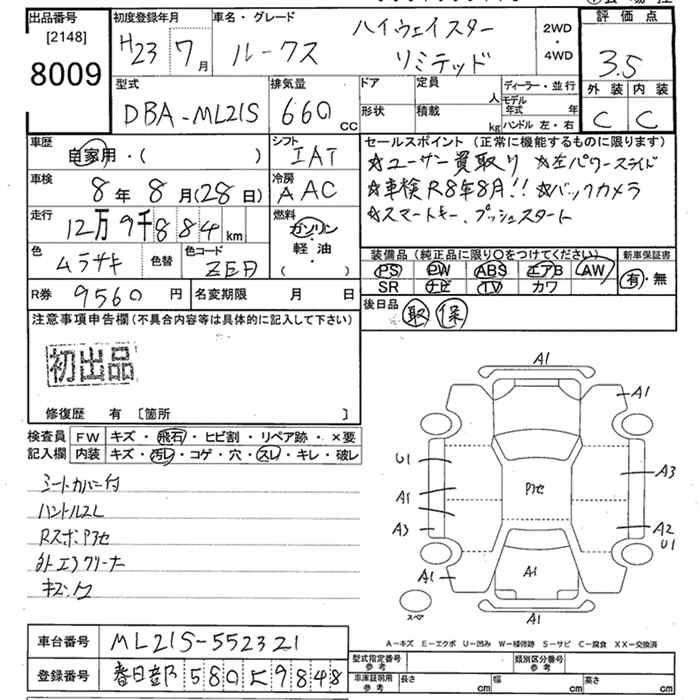 出品番号
[2148]
8009
初度登録年月
H23 7月
車名・グレード
ルークス
ハイウェイスター
リミテッド
2WD
・
4WD
評価点
3.5
外装 内装
C C
型式
DBA-ML21S
排気量
660 cc
ドア
定員
人
形状
積載
kg
ディーラー・並行
モデル年式 年
ハンドル 左・右
車歴
自家用・( )
シフト
IAT
セールスポイント(正常に機能するものに限ります)
☆ユーザー買取り ☆左パワースライド
☆車検R8年8月!! ☆バックカメラ
☆スマートキー、プッシュスタート
車検
8年8月(28日)
冷房
AAC
走行
12万9千884km
燃料
ガソリン
・
軽油
( )
色
ムラサキ
色替
色コード
装備品(純正品に限り○をつけてください)
PS PW ABS エアB AW
SR ナビ TV カワ
新車保証書
有・無
R券
9560円
名変期限 月 日
後日品
取 保
注意事項申告欄(不具合内容等は具体的に記入して下さい)
初出品
修復歴 有 [箇所 ]
検査員
記入欄
FW キズ・飛石・ヒビ割・リペア跡・×要
内装 キズ・汚レ・コゲ・穴・スレ・キレ・破レ
シートカバー付
ハンドルスレ
RスポPアセ
外エラクリーナ
A1
A1
U1
A1
A3
Pアセ
A3
A2
U1
A1
A1
スペア
A1
A-キズ E-エクボ U-凹み W-補修跡 S-サビ C-腐食 XX-交換済
車台番号
ML21S-552321
登録番号
春日部 580 い 9848
型式指定番号
参考
類別区分番号
参考
車庫証明用
参考
長さ cm
幅 cm
高さ cm